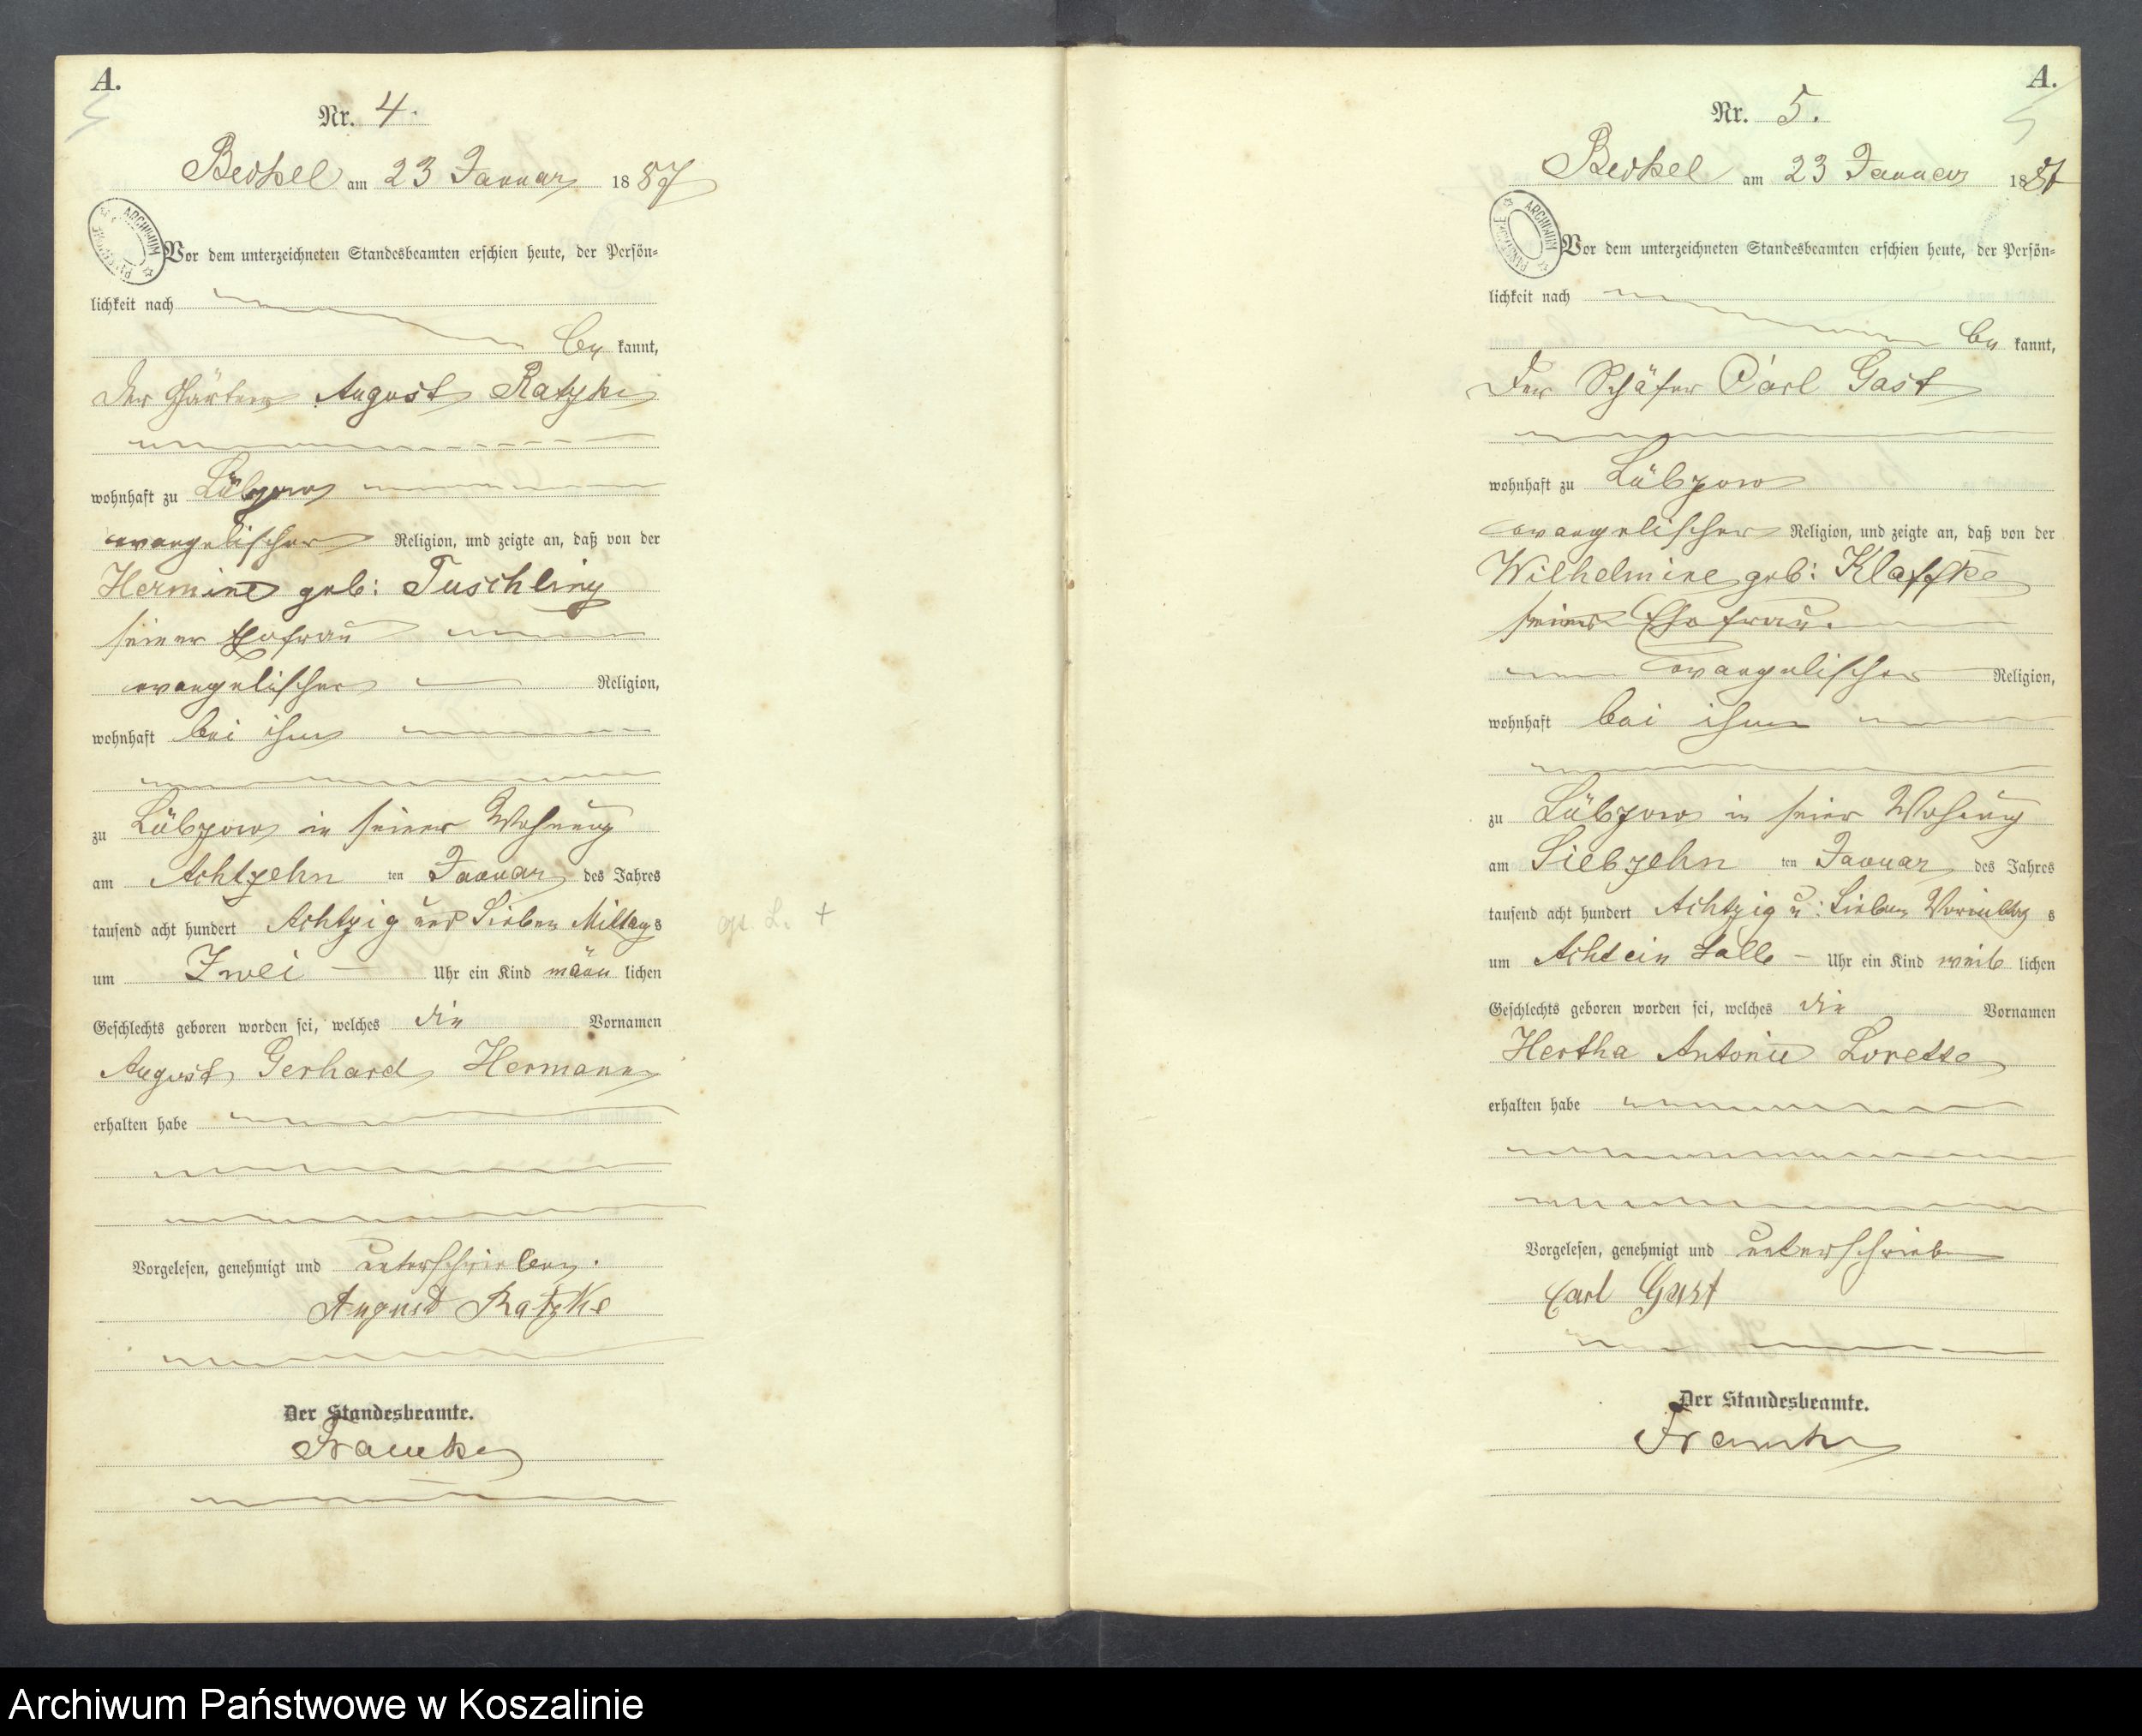 A.
Nr. 4.
Beckel am 23 Januar 1887
ARCHIWUM PAŃSTWOWE
Vor dem unterzeichneten Standesbeamten erschien heute, der Persön=
lichkeit nach
be kannt,
der Gärtner August Ratzke
wohnhaft zu Lübzow
evangelischer Religion, und zeigte an, daß von der
Hermine geb: Tuschling
seiner Ehefrau
evangelischer Religion,
wohnhaft bei ihm
zu Lübzow in seiner Wohnung
am Achtzehn ten Januar des Jahres
tausend acht hundert Achtzig und Sieben Mittags
um Zwei Uhr ein Kind männ lichen
Geschlechts geboren worden sei, welches die Vornamen
August Gerhard Hermann
erhalten habe
Vorgelesen, genehmigt und unterschrieben.
August Ratzke
Der Standesbeamte.
Francke
A.
Nr. 5.
Beckel am 23 Januar 1887
ARCHIWUM PAŃSTWOWE
Vor dem unterzeichneten Standesbeamten erschien heute, der Persön=
lichkeit nach
be kannt,
der Schäfer Carl Gast
wohnhaft zu Lübzow
evangelischer Religion, und zeigte an, daß von der
Wilhelmine geb: Klaffke
seiner Ehefrau.
evangelischer Religion,
wohnhaft bei ihm
zu Lübzow in seier Wohung
am Siebzehn ten Januar des Jahres
tausend acht hundert Achtzig u: Sieben Vormittag s
um Acht ein halb Uhr ein Kind weib lichen
Geschlechts geboren worden sei, welches die Vornamen
Hertha Antonie Lorette
erhalten habe
Vorgelesen, genehmigt und unterschrieben
Carl Gast
Der Standesbeamte.
Francke
Archiwum Państwowe w Koszalinie